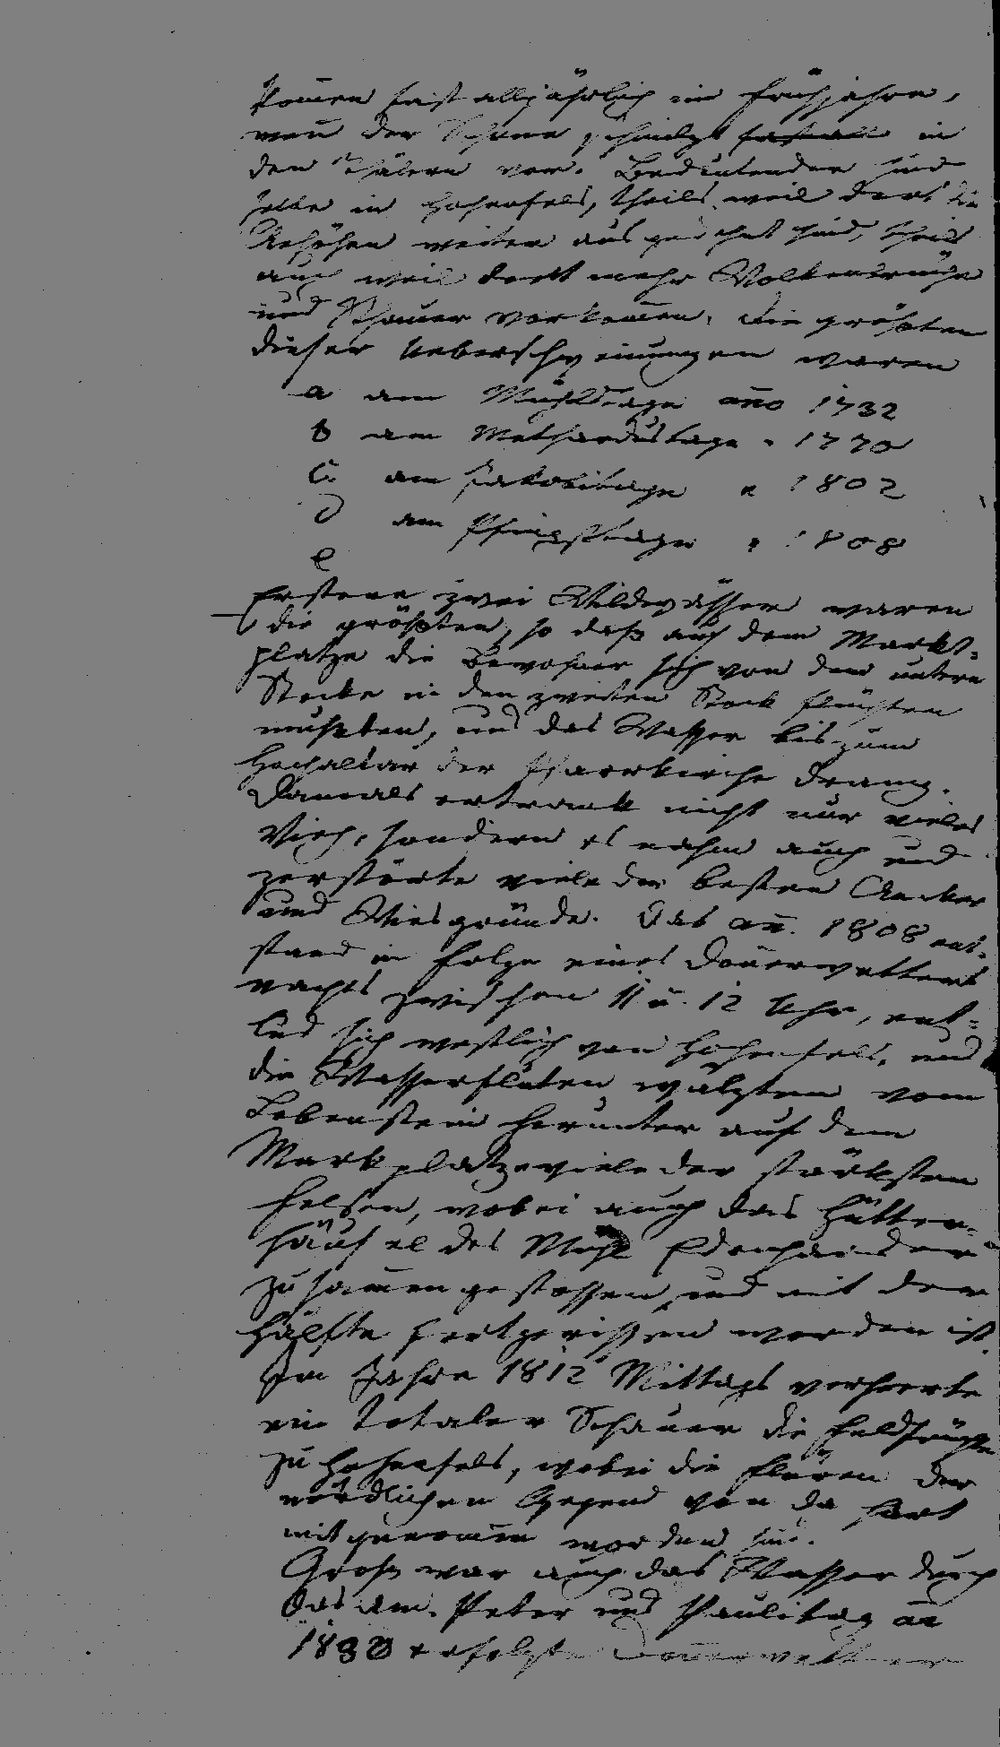 komen fast alljährlich im Frühjahre,
wen der Schnee schmilzt fast alle in
den Thälern vor. Bedeutender sind
selbe in Hohenfels, theils weil dort die
Anhöhen weiter ausgedehnt sind, theils
auch weil dort mehr Wolkenbrüche
und Schauer vorkomen. Die größten
dieser Ueberschwemungen waren
a am Mühltage ano 1732
b am Methardustage " 1770
c. am Jakobitage " 1802
d am Pfingsttage " 1808
e
Erstere zwei Wildwässer waren
die größten, so daß auf dem Markt-
platze die Bewohner sich von dem untern
Stocke in den zweiten Stock flüchten
mußten, und das Wasser bis zum
Hochaltar der Pfarrkirche drang.
Damals ertrank nicht nur vieles
Vieh, sondern es nahm auch und
zerstörte viele der besten Aecker
und Wiesgründe. Das an. 1808 ent-
stand in Folge eines Donerwetters
nachts zwischen 11 u. 12 Uhr, ent-
lud sich westlich von Hohenfels, und
die Wasserfluten wälzten vom
Lebenstein herunter auf dem
Markplatze viele der stärksten
Felsen, wobei auch das Hütter-
häusel des
zusamengestossen, und mit der
Hälfte fortgerissen worden ist.
Im Jahre 1812 Mittags verheerte
ein totaler Schauer die Feldfrüchte
zu Hohenfels, wobei die Fluren der
nördlichen Gegend von da hart
mitgenomen worden sind.
Groß war auch das Wasser durch
das am Peter und Paulitag an
1830 erfolgte Donerwetter